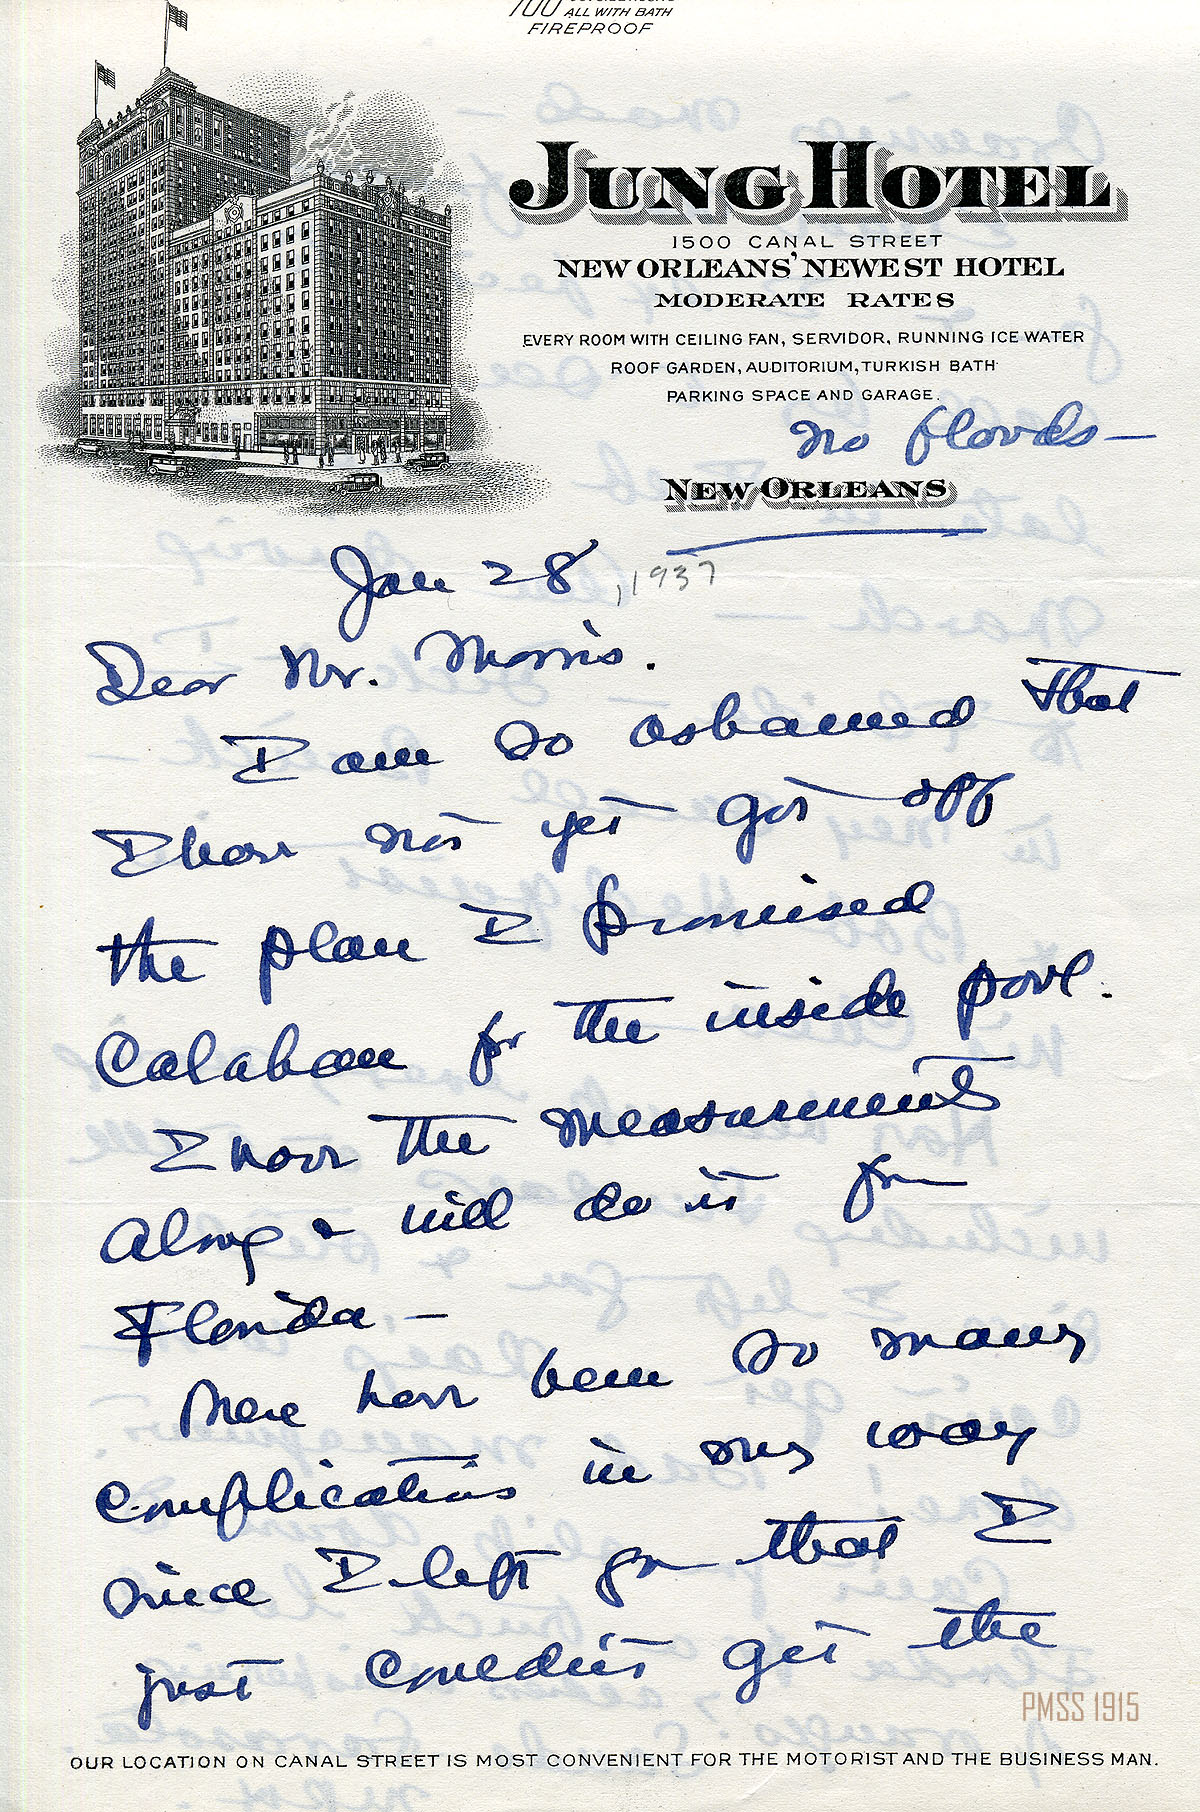 700
ALL WITH BATH
FIREPROOF
JUNG HOTEL
1500 CANAL STREET
NEW ORLEANS' NEWEST HOTEL
MODERATE RATES
EVERY ROOM WITH CEILING FAN, SERVIDOR, RUNNING ICE WATER
ROOF GARDEN, AUDITORIUM, TURKISH BATH
PARKING SPACE AND GARAGE.
No floods—
NEW ORLEANS
Jan 28, 1937
Dear Mr. Morris.
I am so ashamed that
I have not yet got off
the plan I promised
Calahan for the inside pool.
I have the measurements
along & will do it from
Florida —
There have been so many
complications in my way
since I left you that I
just couldn't get the
PMSS 1915
OUR LOCATION ON CANAL STREET IS MOST CONVENIENT FOR THE MOTORIST AND THE BUSINESS MAN.